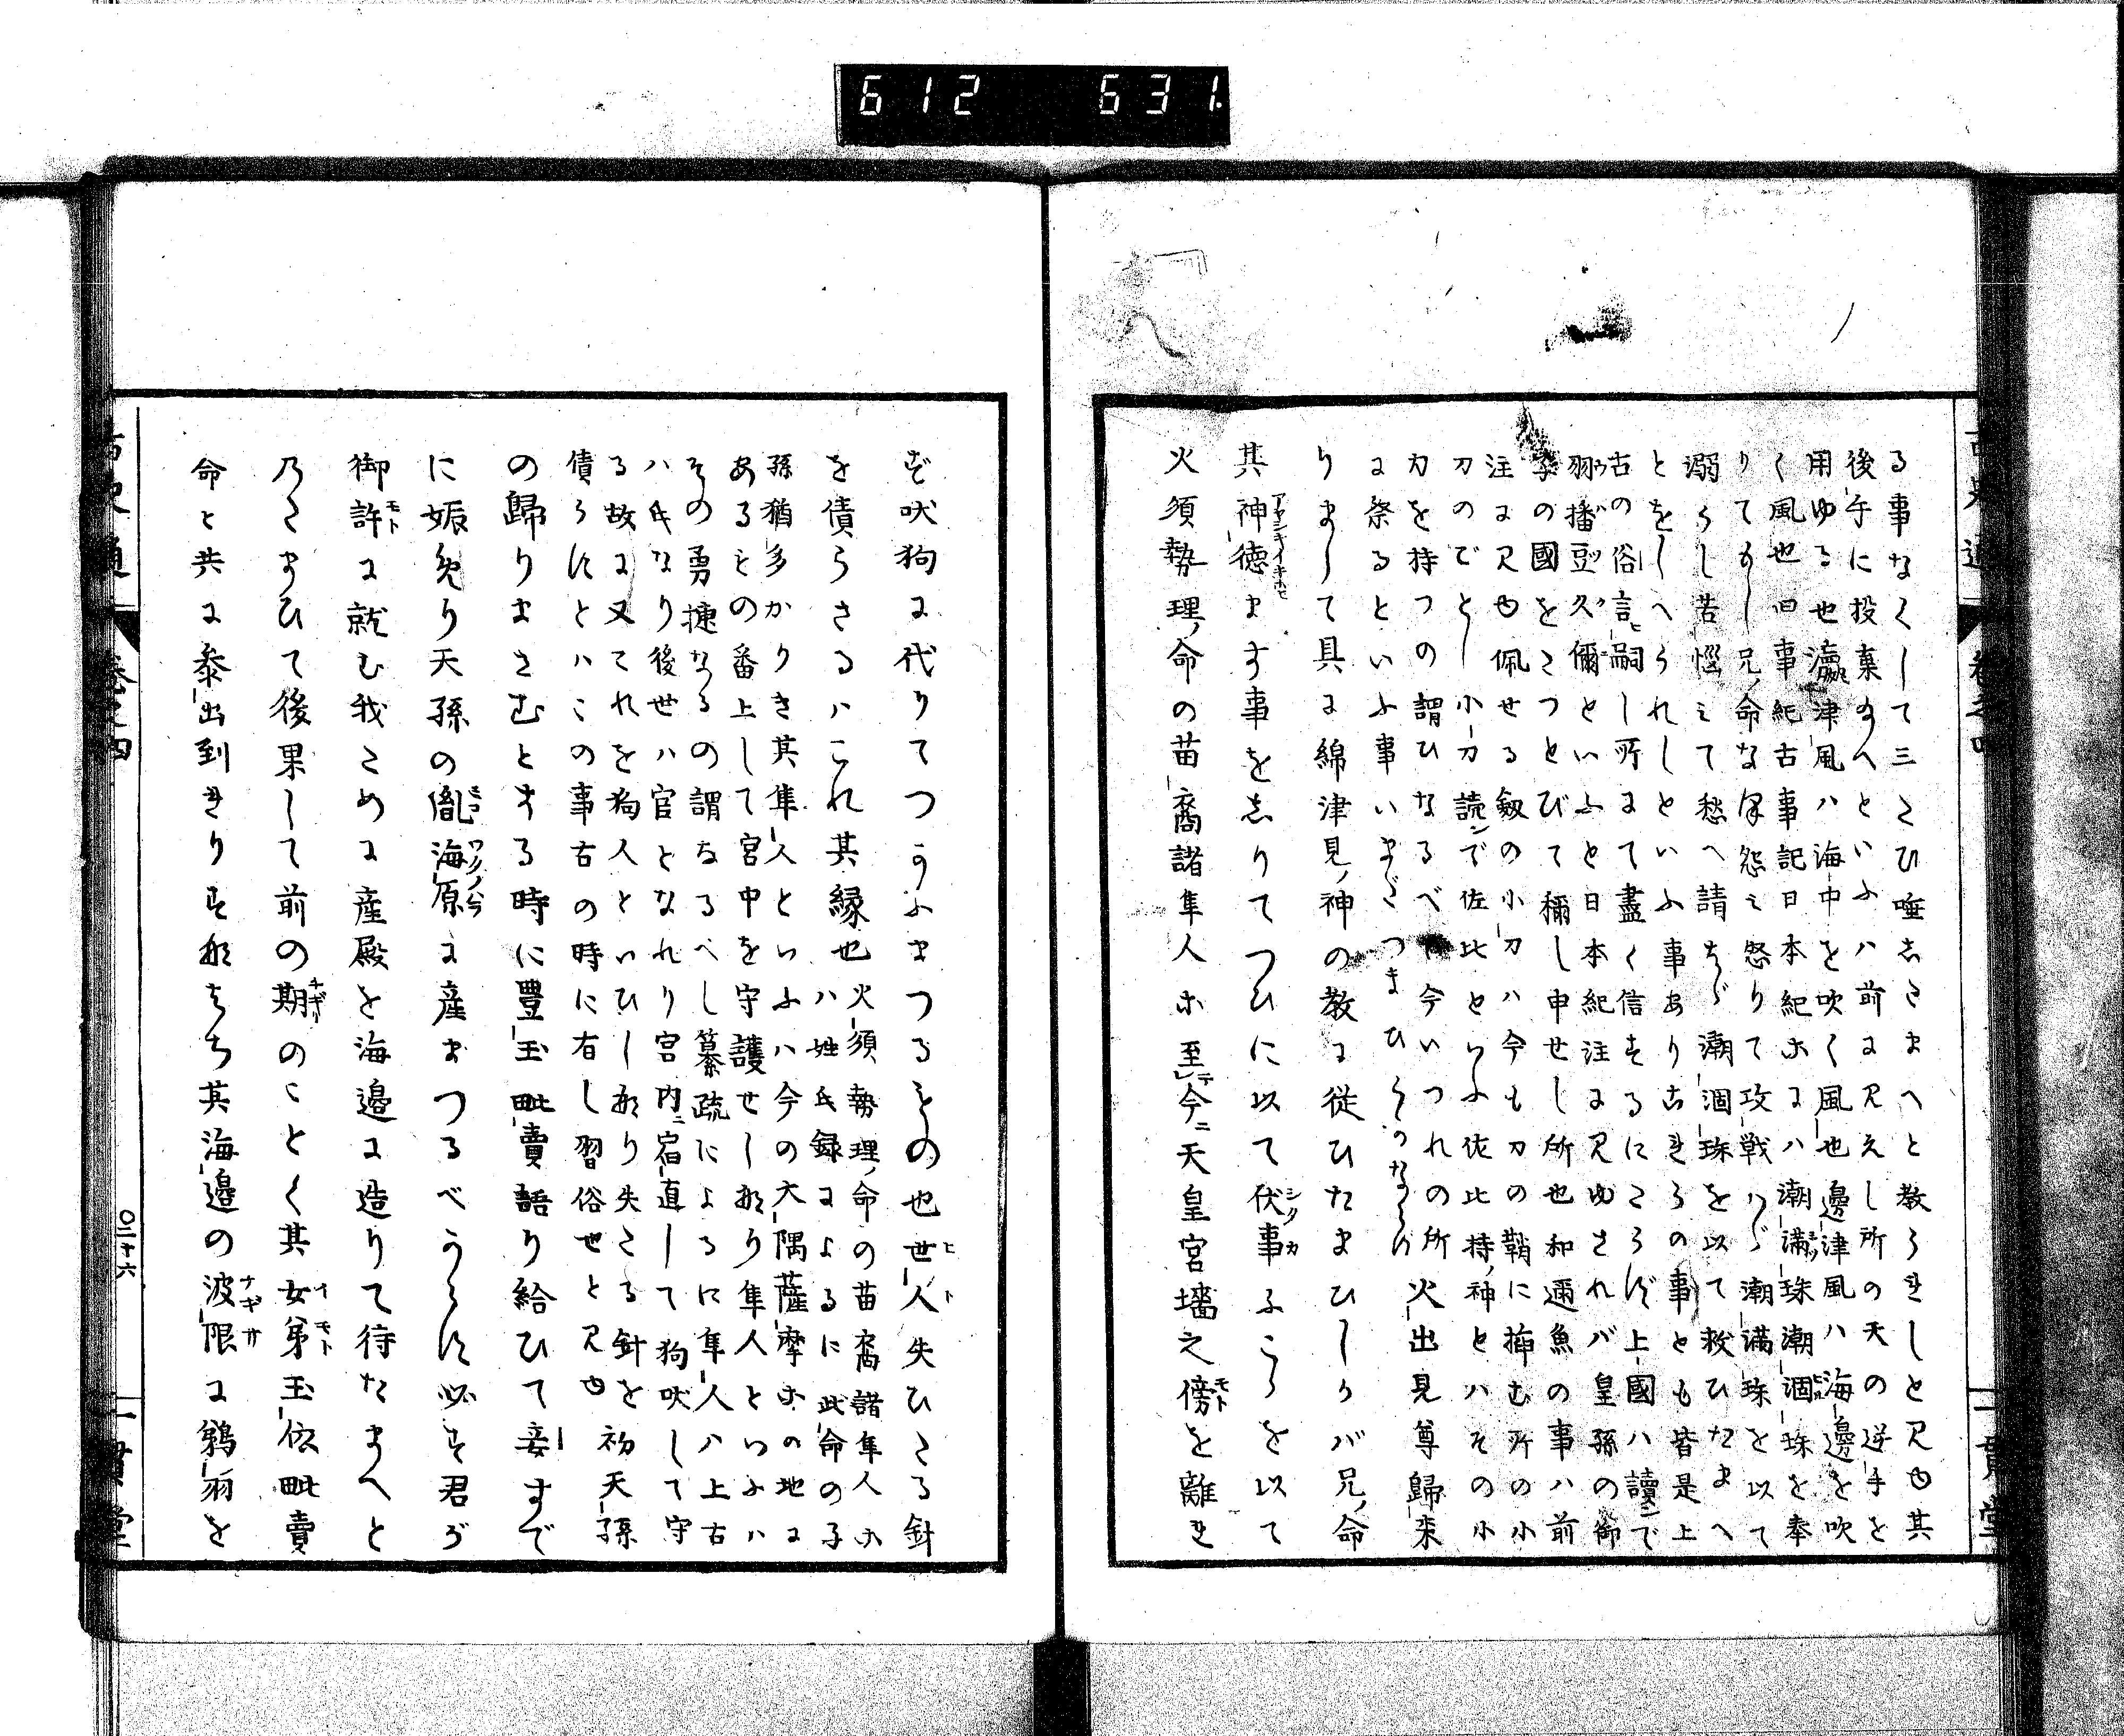 612 631.
る事なくして三たひ唾したまへと教らきしと見ゆ其
後手に投棄給へといふハ前に見えし所の天の逆手を
用ゆる也瀛津風ハ海中を吹く風也邊津風ハ海邊を吹
く風也旧事紀古事記日本紀ホにハ潮満珠潮涸珠を奉
りて若し兄ノ命な深怨ミ怒りて攻戦ハゞ潮満珠を以て
溺らし苦惱ミて愁へ請さゞ潮涸珠を以て救ひたまへ
とをしへられしといふ事あり古きらの事とも皆是上
古の俗言ヒ嗣し所にて盡く信するにたらず上國ハ讀ンで
羽播豆久儞といふと日本紀注に見ゆされバ皇孫の御
孚の國をさつとびて稱し申せし所也和邇魚の事ハ前
注に見ゆ佩せる釼の小刀ハ今も刀の鞘に挿む所の小
刀のごとし小刀読ンで佐比といふ佐比持ノ神とハその小
刀を持つの謂ひなるべし今いつれの所
に祭るといふ事いまだつまひらかならす 火出見尊歸來
りまして具に綿津見ノ神の教に従ひたまひしりバ兄ノ命
其神徳ます事をしりてつひに以て伏事ふこらを以て
火須勢理ノ命の苗裔諸隼人ホ至今ニ天皇宮墻之傍を離き
ど吠狗に代りてつかふまつるその也世人失ひたる針
を債らさるハこれ其縁也 火須勢理ノ命の苗裔諸隼人ホ
ハ姓氏録によるに此命の子
孫猶多かりき其隼人といふハ今の大隅薩摩ホの地に
あるとの番上して宮中を守護せし那り隼人といふハ
その勇捷なるの謂なるべし纂疏によるに隼人ハ上古
ハ氏なり後世ハ官となれり宮内ニ宿直して狗吠して守
る故に又てれを狗人といひし那り失たる針を
債らすとハこの事古の時に有し習俗せと見ゆ 初天孫
の歸りまさむとする時に豊玉毗賣語り給ひて妾すで
に娠免り天孫の胤海原に産まつるべうらす必す君ゞ
御許に就む我ために産殿を海邉に造りて待たまへと
乃たまひて後果して前の期のことく其女弟玉依毗賣
命と共に参出到きりす那ち其海邉の波限に鵜羽を
古史通 巻之四 〇二十六 一貫堂